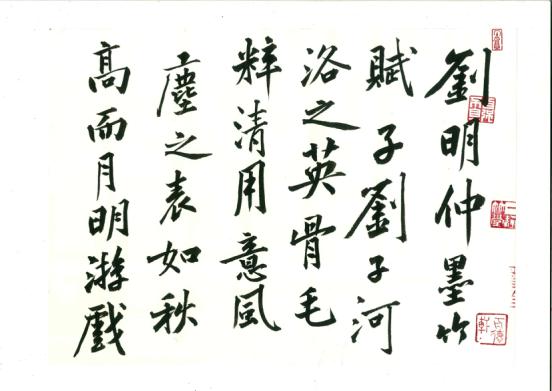 劉明仲墨竹
賦子劉子河
洛之英骨毛
粹清用意風
塵之表如秋
高而月明游戲